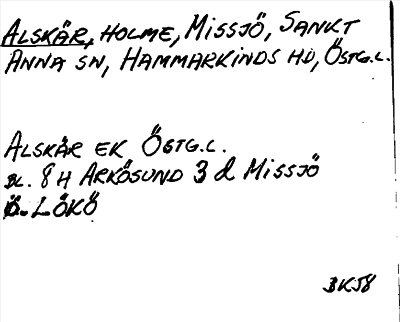 ALSKÄR, HOLME, MISSJÖ, SANKT
ANNA SN, HAMMARKINDS HD, ÖSTG.L.
ALSKÄR EK ÖSTG.L.
BL. 8 H ARKÖSUND 3 d MISSJÖ
Ö. LÖKÖ
BK58